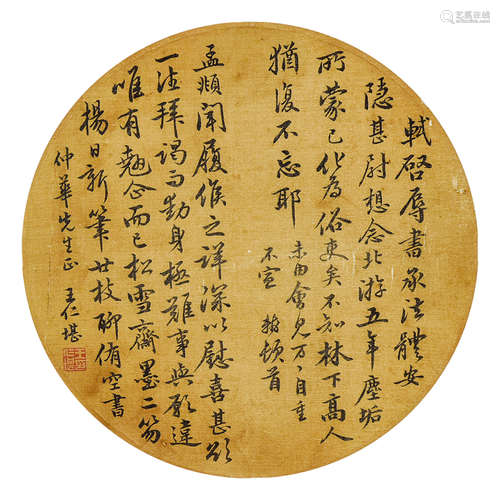 軾啓辱書承法體安
隱甚尉想念北游五年塵垢
所蒙已化為俗吏矣不知林下高人
猶復不忘耶 未由會見万々自重
不宣 軾頓首
孟頫聞履候之詳深以慰喜甚欲
一法拜謁而動身極難事與願違
唯有翹企而已松雪齋墨二笏
楊日新筆廿枝聊侑空書
仲華先生正 王仁堪